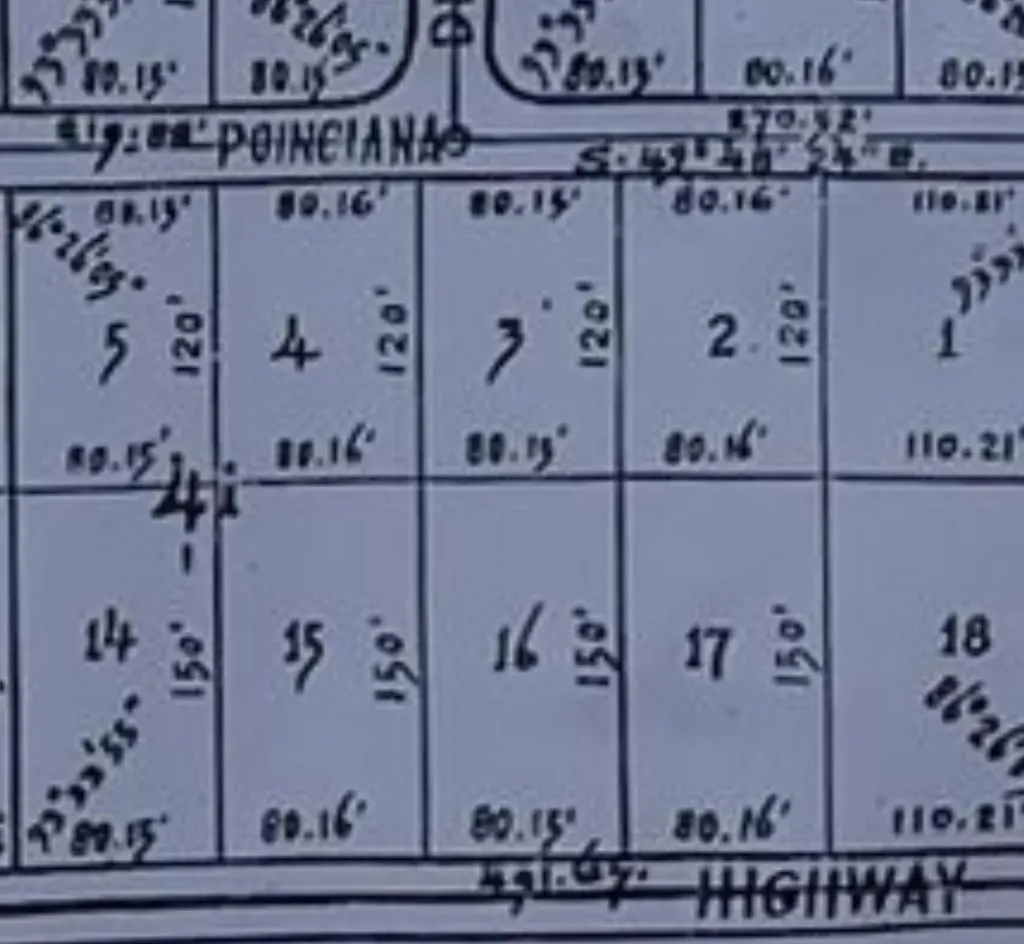 80.15' 80.15' 80.15' 80.16' 80.15
POINCIANA 270.52'
80.15' 80.16' 80.15' 80.16' 110.21'
86°26'05"
5 120' 4 120' 3 120' 2 120' 1
80.15' 80.16' 80.15' 80.16' 110.21'
14 150' 15 150' 16 150' 17 150' 18
86°26'
80.15' 80.16' 80.15' 80.16' 110.21'
HIGHWAY